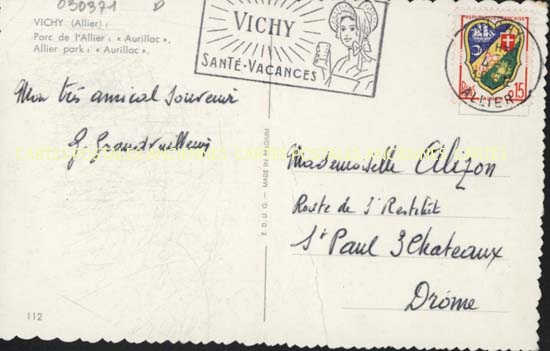 030371
VICHY (Allier) :
Parc de l'Allier : « Aurillac ».
Allier park : « Aurillac ».
VICHY
SANTÉ-VACANCES
15
ALLIER
Mon très amical souvenir
E. D. U. G. - MADE IN BELGIUM
Mademoiselle Alizon
Route de St Restitut
St Paul 3 Chateaux
Drôme
112